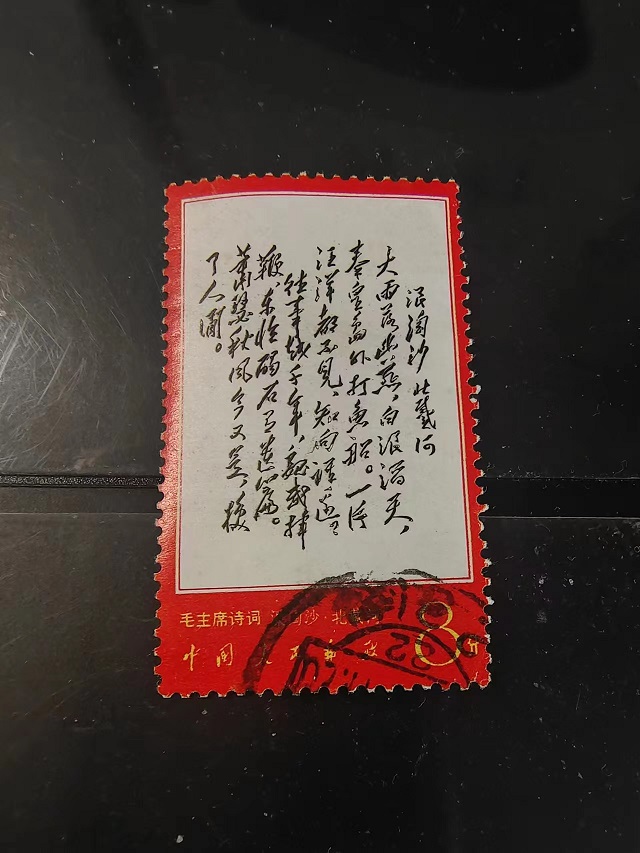 浪淘沙 北戴河
大雨落幽燕,白浪滔天,
秦皇岛外打鱼船。一片
汪洋都不见,知向谁边?
往事越千年,魏武挥
鞭,东临碣石有遗篇。
萧瑟秋风今又是,换
了人间。
毛主席诗词 浪淘沙·北戴河
中国人民邮政
8分